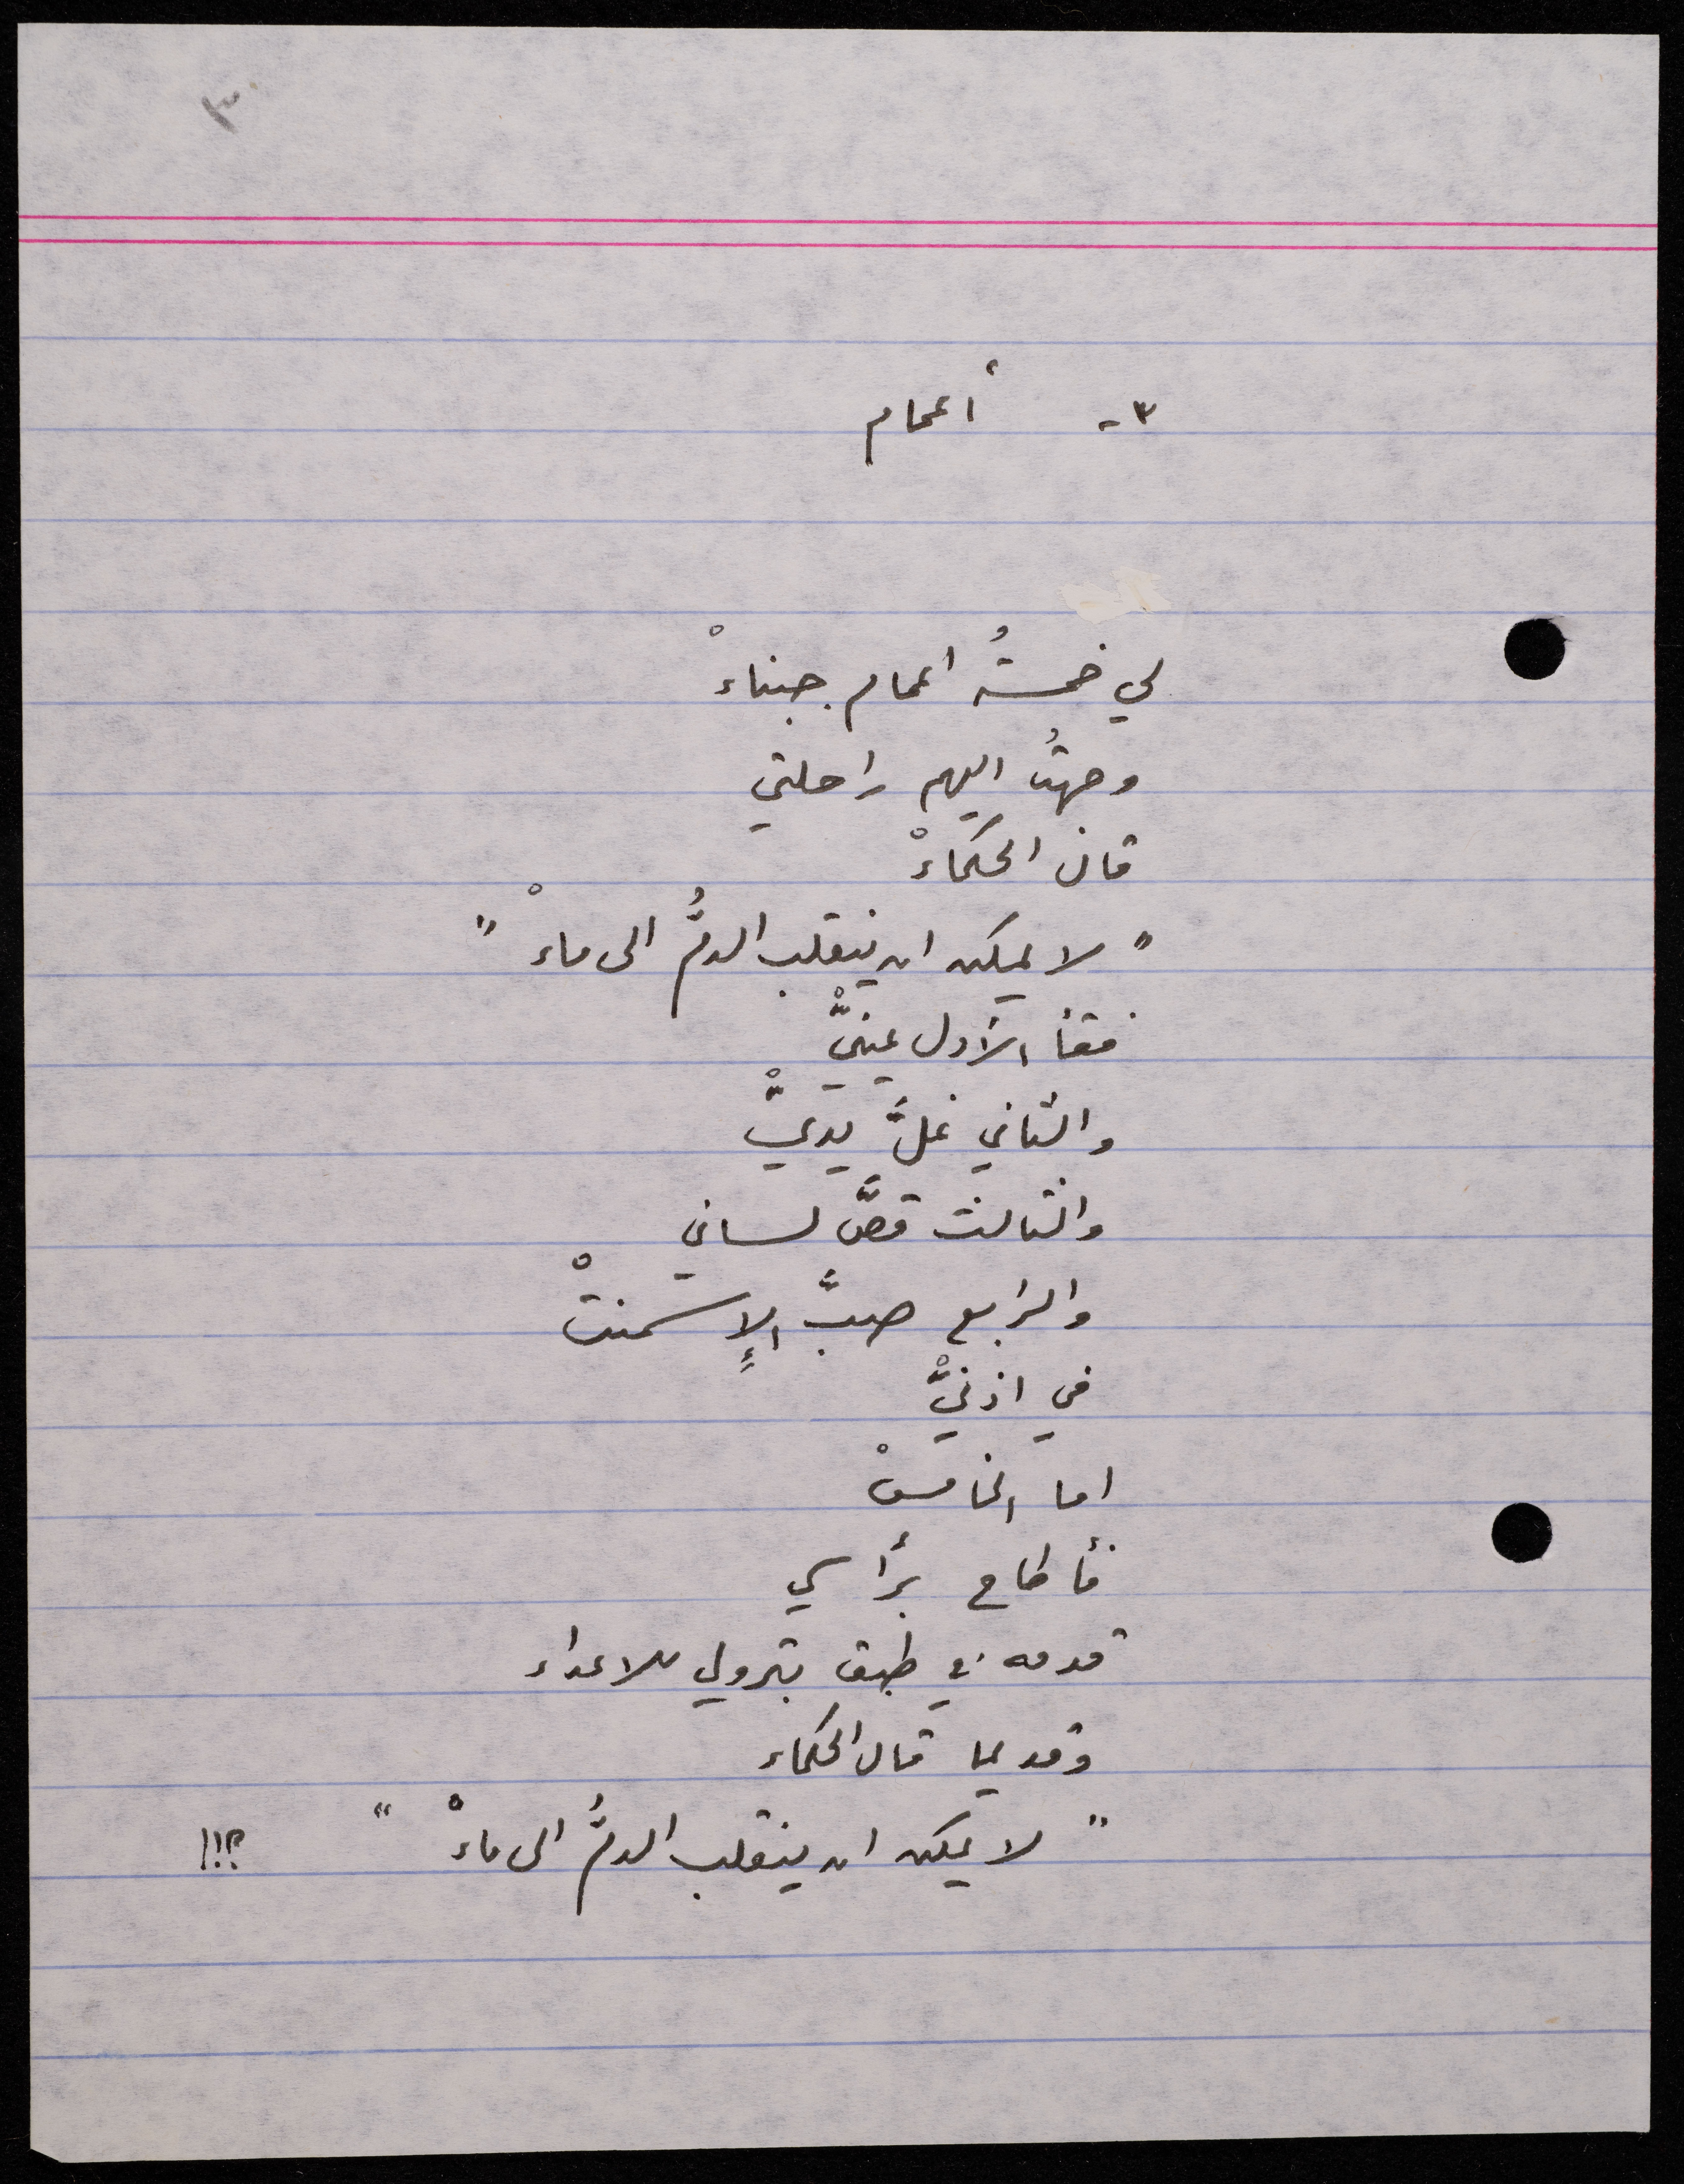 ٣
٣- أعمام
لي خمسةُ اعمام جبناءْ
وجهتُ اليهم راحلتي
قال الحكماءْ
"لا يمكن ان ينقلب الدمُّ الى ماءْ"
ففقأ الأول عينيّْ
والثاني غلَّ يديّْ
والثالث قصَّ لساني
والرابع صبَّ الإسمنتْ
في اذنيّْ
اما الخامسْ
فأطاح برأسي
قدمه في طبق بترولي للاعداء
وقديما قال الحكماء
"لا يمكن ان ينقلب الدمُّ الى ماءْ" ؟!!